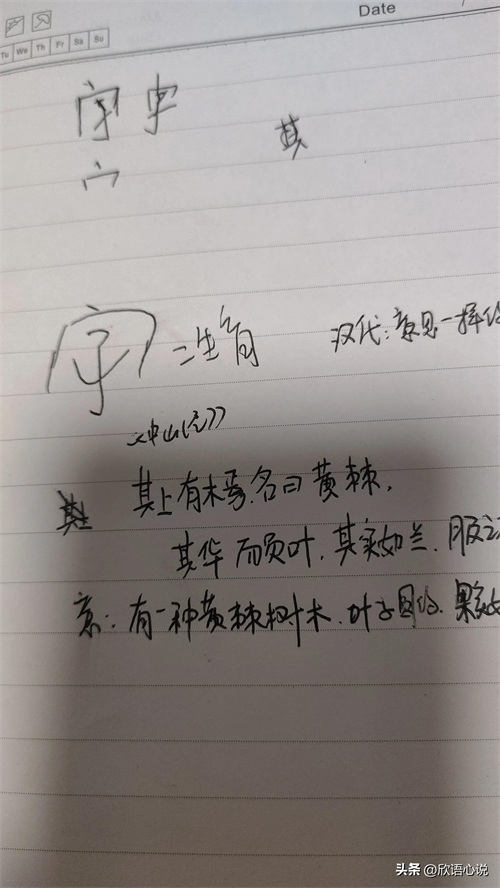 Date
Tu We Th Fr Sa Su
字 字
宀
其
字 二生育
汉代:意思一样
《中山经》
其上有木焉,名曰黄棘,
其华而员叶,其实如兰,服
意:有一种黄棘树木,叶子圆的,果实
头条 @欣语心说